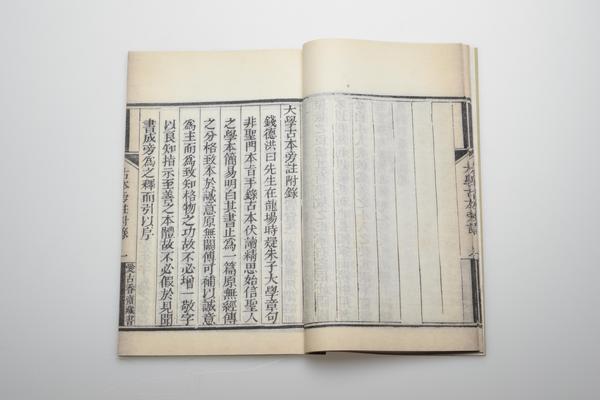 大學古本旁註附錄
錢德洪曰先生在龍場時疑朱子大學章句
非聖門本旨手錄古本伏讀精思始信聖人
之學本簡易明白其書止為一篇原無經傳
之分格致本於誠意原無闕傳可補以誠意
為主而為致知格物之功故不必增一敬字
以良知指示至善之本體故不必假於見聞
書成旁為之釋而引以序
古本旁註附錄 一
愛古香齋藏書